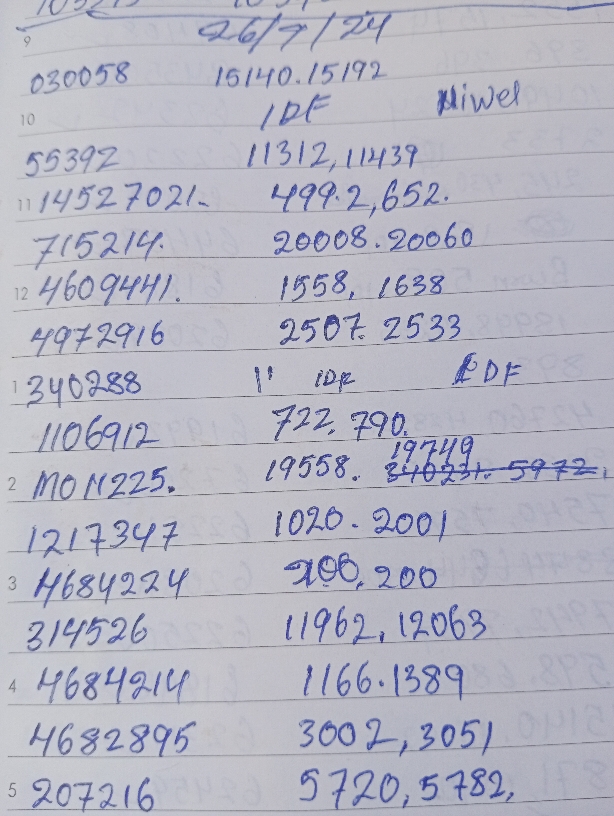 26/7/24
9
030058 15140.15192
10 IDF Niwel
55392 11312,11439
11 14527021. 499.2,652.
715214. 20008.20060
12 4609441. 1558, 1638
4972916 2507. 2533
1 340288 " IDF IDF
1106912 722. 790.
19749
2 MON225. 19558. 340231. 5972,
1217347 1020. 2001
3 4684224 200
314526 11962, 12063
4 4684214 1166.1389
4682895 3002, 3051
5 207216 5720, 5782,